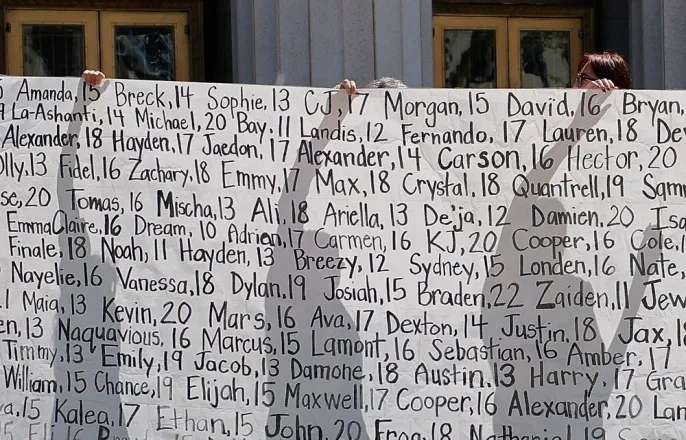 Amanda, 15 Breck, 14 Sophie, 13 CJ, 17 Morgan, 15 David, 16 Bryan,
La-Ashanti, 14 Michael, 20 Bay, 11 Landis, 12 Fernando, 17 Lauren, 18 Dev
Alexander, 18 Hayden, 17 Jaedon, 17 Alexander, 14 Carson, 16 Hector, 20
olly, 13 Fidel, 16 Zachary, 18 Emmy, 17 Max, 18 Crystal, 18 Quantrell, 19 Sam
se, 20 Tomas, 16 Mischa, 13 Ali, 18 Ariella, 13 De'ja, 12 Damien, 20 Isa
EmmaClaire, 16 Dream, 10 Adrien, 17 Carmen, 16 KJ, 20 Cooper, 16 Cole, 1
Finale, 18 Noah, 11 Hayden, 13 Breezy, 12 Sydney, 15 Londen, 16 Nate,
Nayelie, 16 Vanessa, 18 Dylan, 19 Josiah, 15 Braden, 22 Zaiden, 11 Jew
1 Maia, 13 Kevin, 20 Mars, 16 Ava, 17 Dexton, 14 Justin, 18 Jax, 18
en, 13 Naquavious, 16 Marcus, 15 Lamont, 16 Sebastian, 16 Amber, 17
Timmy, 13 Emily, 19 Jacob, 13 Damone, 18 Austin, 13 Harry, 17 Gra
William, 15 Chance, 19 Elijah, 15 Maxwell, 17 Cooper, 16 Alexander, 20 Lan
a, 15 Kalea, 17 Ethan, 15 John, 20 Frog, 18 Nathaniel, 19 S